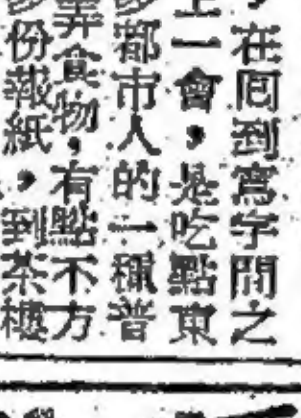 ，在囘到寫字間之
一會，是吃點東
多都市人的一種普
弄食物，有點不方
份報紙，到茶樓